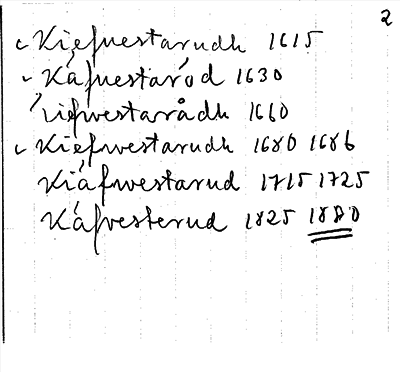 2
Kiefuestarudh 1615
Káfuestaród 1630
Kiefwestarådh 1660
Kiefwestarudh 1680 1686
Kiáfwestarud 1715 1725
Káfvesterud 1825 1880